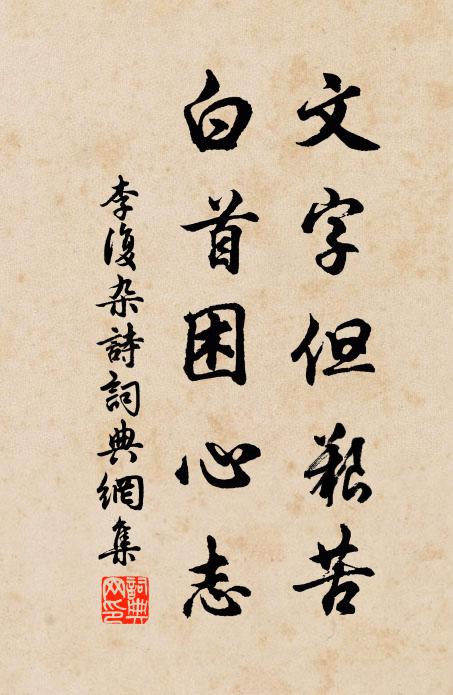 文字但艱苦
白首困心志
李復杂詩詞典網集
詞典网印